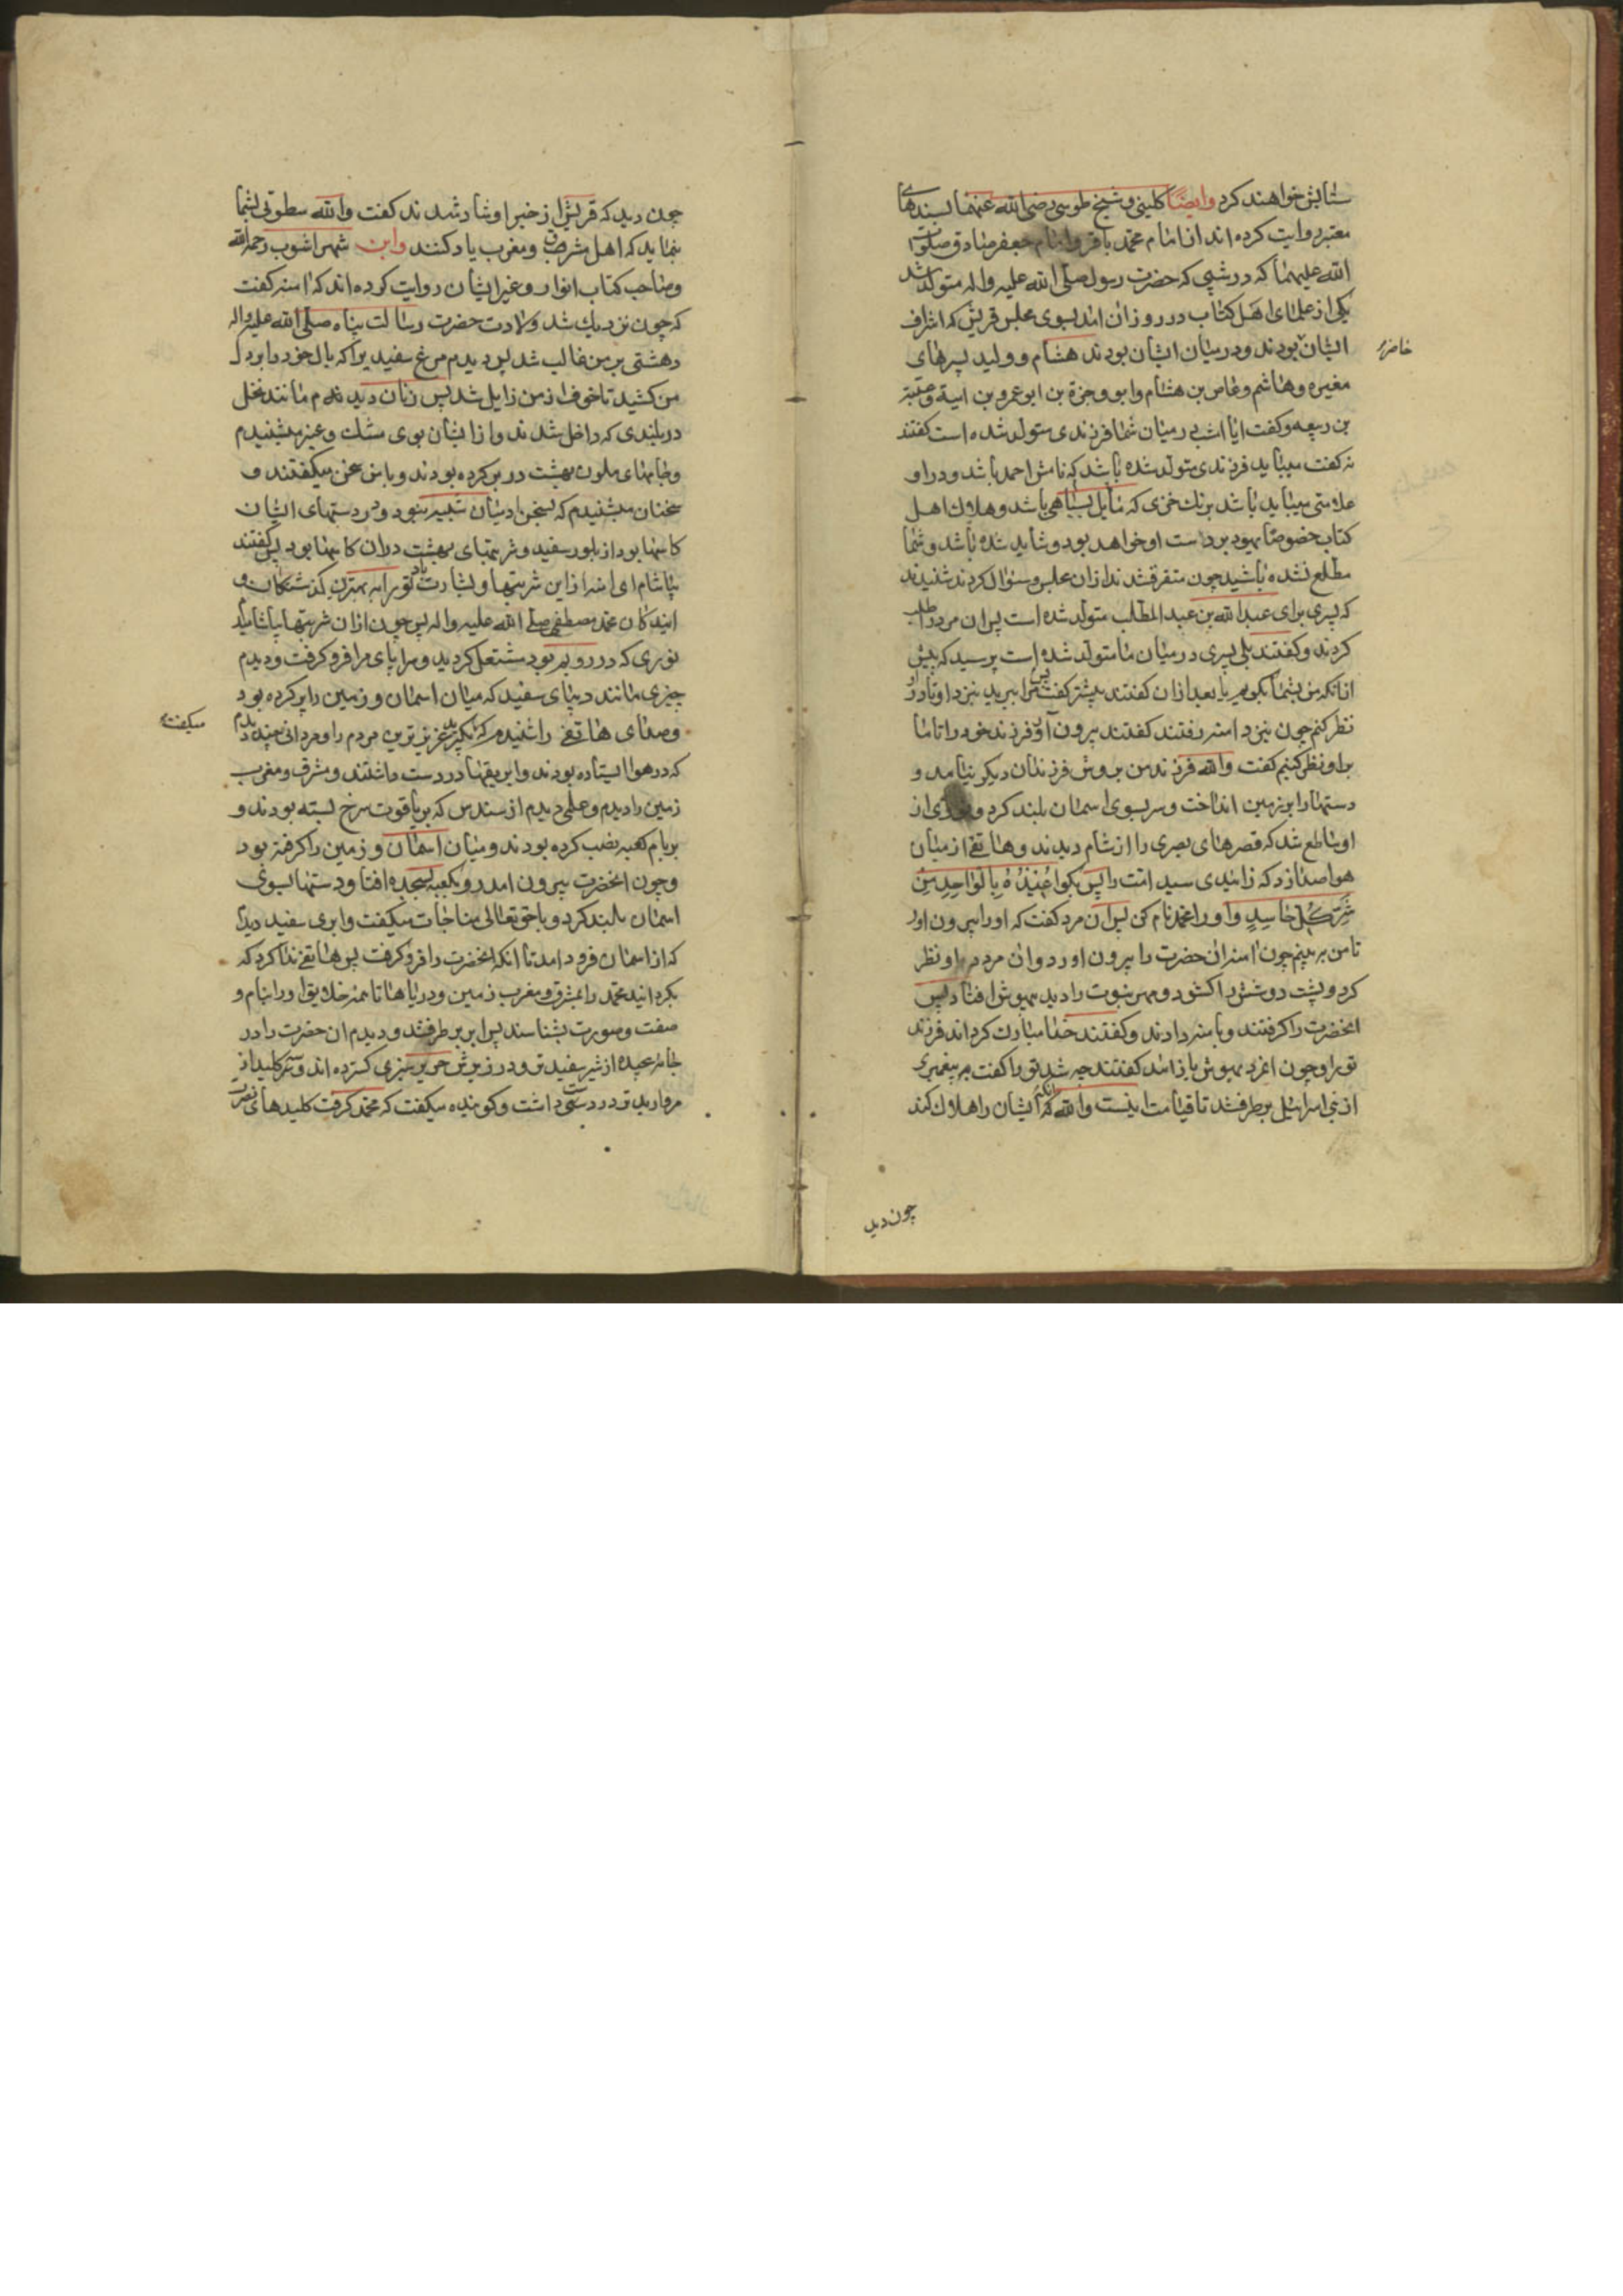 ستایش خواهند کرد وایضًا کلینی و شیخ طوسی رضی الله عنهما بسندهای
معتبر روایت کرده اند از امام محمد باقر و امام جعفر صادق صلوات
الله علیهما که در شبی که حضرت رسول صلی الله علیه واله متولد شد
یکی از علمای اهل کتاب در روز ان امد بسوی مجلس قریش که اشراف
ایشان بودند و در میان ایشان بودند هشام و ولید پسرهای
حاضر
مغیره و هاشم وعاص بن هشام وابو وجزة بن ابو عمرو بن امیة وعتبة
بن ربیعه و کفت ایا امشب در میان شما فرزندی متولد شده است کفتند
نه کفت میباید فرزندی متولد شده باشد که نامش احمد باشد و در او
علامتی میباید باشد برنك خزی که مایل بسیاهی باشد و هلاك اهل
کتاب خصوصًا یهود بر دست او خواهد بود و شاید شده باشد و شما
مطلع نشده باشید چون متفرق شدند ازان مجلس و سئوال کردند شنیدند
که پسری برای عبدالله بن عبدالمطلب متولد شده است پس ان مرد را طلب
کردند و کفتند بلی پسری در میان ما متولد شده است پرسید که پیش
ازانکه من بشما بکویم یا بعد ازان کفتند پیشتر کفت پس مرا ببرید بنزد او تا در او
نظر کنم چون بنزد امنه رفتند کفتند بیرون آور فرزند خود را تا ما
براو نظر کنیم کفت والله فرزند من بروش فرزندان دیکر نیامد و
دستها را بر زمین انداخت و سر بسوی اسمان بلند کرد و نوری از
او ساطع شد که قصرهای بصری را از شام دیدند و هاتفی از میان
هوا صدا زد که زاییدی سید امت را پس بکو اعیذه بالواحد من
شر کل حاسد و او را محمد نام کن پس ان مرد کفت که او را بیرون اور
تا من ببینم چون امنه ان حضرت را بیرون اورد وان مرد در او نظر
کرد و پشت دوشش را کشود و مهر نبوت را دید بیهوش افتاد پس
انحضرت را کرفتند و بامنه دادند و کفتند خدا مبارك کرداند فرزند
تو را و چون انمرد بیهوش باز امد کفتند چه شد تو را کفت پیغمبری
از بنی اسرائیل برطرف شد تا قیامت اینست والله انکه ایشان را هلاك کند
چون دید
چون دید که قریش از خبر او شاد شدند کفت والله سطوتی بشما
بنماید که اهل مشرق ومغرب یاد کنند وابن شهراشوب رحمه الله
وصاحب کتاب انوار و غیر ایشان روایت کرده اند که امنه کفت
که چون نزدیك شد ولادت حضرت رسالت پناه صلی الله علیه واله
دهشتی بر من غالب شد پس دیدم مرغ سفیدیرا که بال خود را بر دل
من کشید تا خوف از من زایل شد پس زنان دیدم مانند نخل
در بلندی که داخل شدند و از ایشان بوی مشك و عنبر میشنیدم
و جامهای ملون بهشت در بر کرده بودند و با من سخن میکفتند و
سخنان میشنیدم که بسخن ادمیان شبیه نبود و در دستهای ایشان
کاسها بود از بلور سفید و شربتهای بهشت دران کاسها بود پس کفتند
بیاشام ای امنه ازاین شربتها و بشارت باد تو را به بهترین کذشتکان و
ایندکان محمد مصطفی صلی الله علیه واله پس چون ازان شربتها بیاشامیدم
نوری که در رویم بود مشتعل کردید و سراپای مرا فرو کرفت و دیدم
چیزی مانند دیبای سفید که میان اسمان و زمین را پر کرده بود
وصدای هاتفی را شنیدم که میکفت بکیرید عزیزترین مردم را و مردانی چند دیدم
که در هوا ایستاده بودند و ابریقها در دست داشتند و مشرق و مغرب
زمین را دیدم و علمی دیدم از سندس که بر یاقوت سرخ بسته بودند و
بر بام کعبه نصب کرده بودند و میان اسمان و زمین را کرفته بود
و چون انحضرت بیرون امد رو بکعبه بسجده افتاد و دستها بسوی
اسمان بلند کرد و با حق تعالی مناجات میکفت و ابری سفید دیدم
که از اسمان فرود امد تا انکه انحضرت را فرو کرفت پس هاتفی ندا کرد که
بکردانید محمد را بمشرق و مغرب زمین و دریاها تا همه خلایق او را بنام و
صفت و صورت بشناسند پس ابر برطرف شد و دیدم ان حضرت را در
جامه پیچیده از شیر سفیدتر و در زیرش حریر سبزی کسترده اند و سه کلید از
مروارید تر در دست داشت و کوینده میکفت که محمد کرفت کلیدهای نصرت